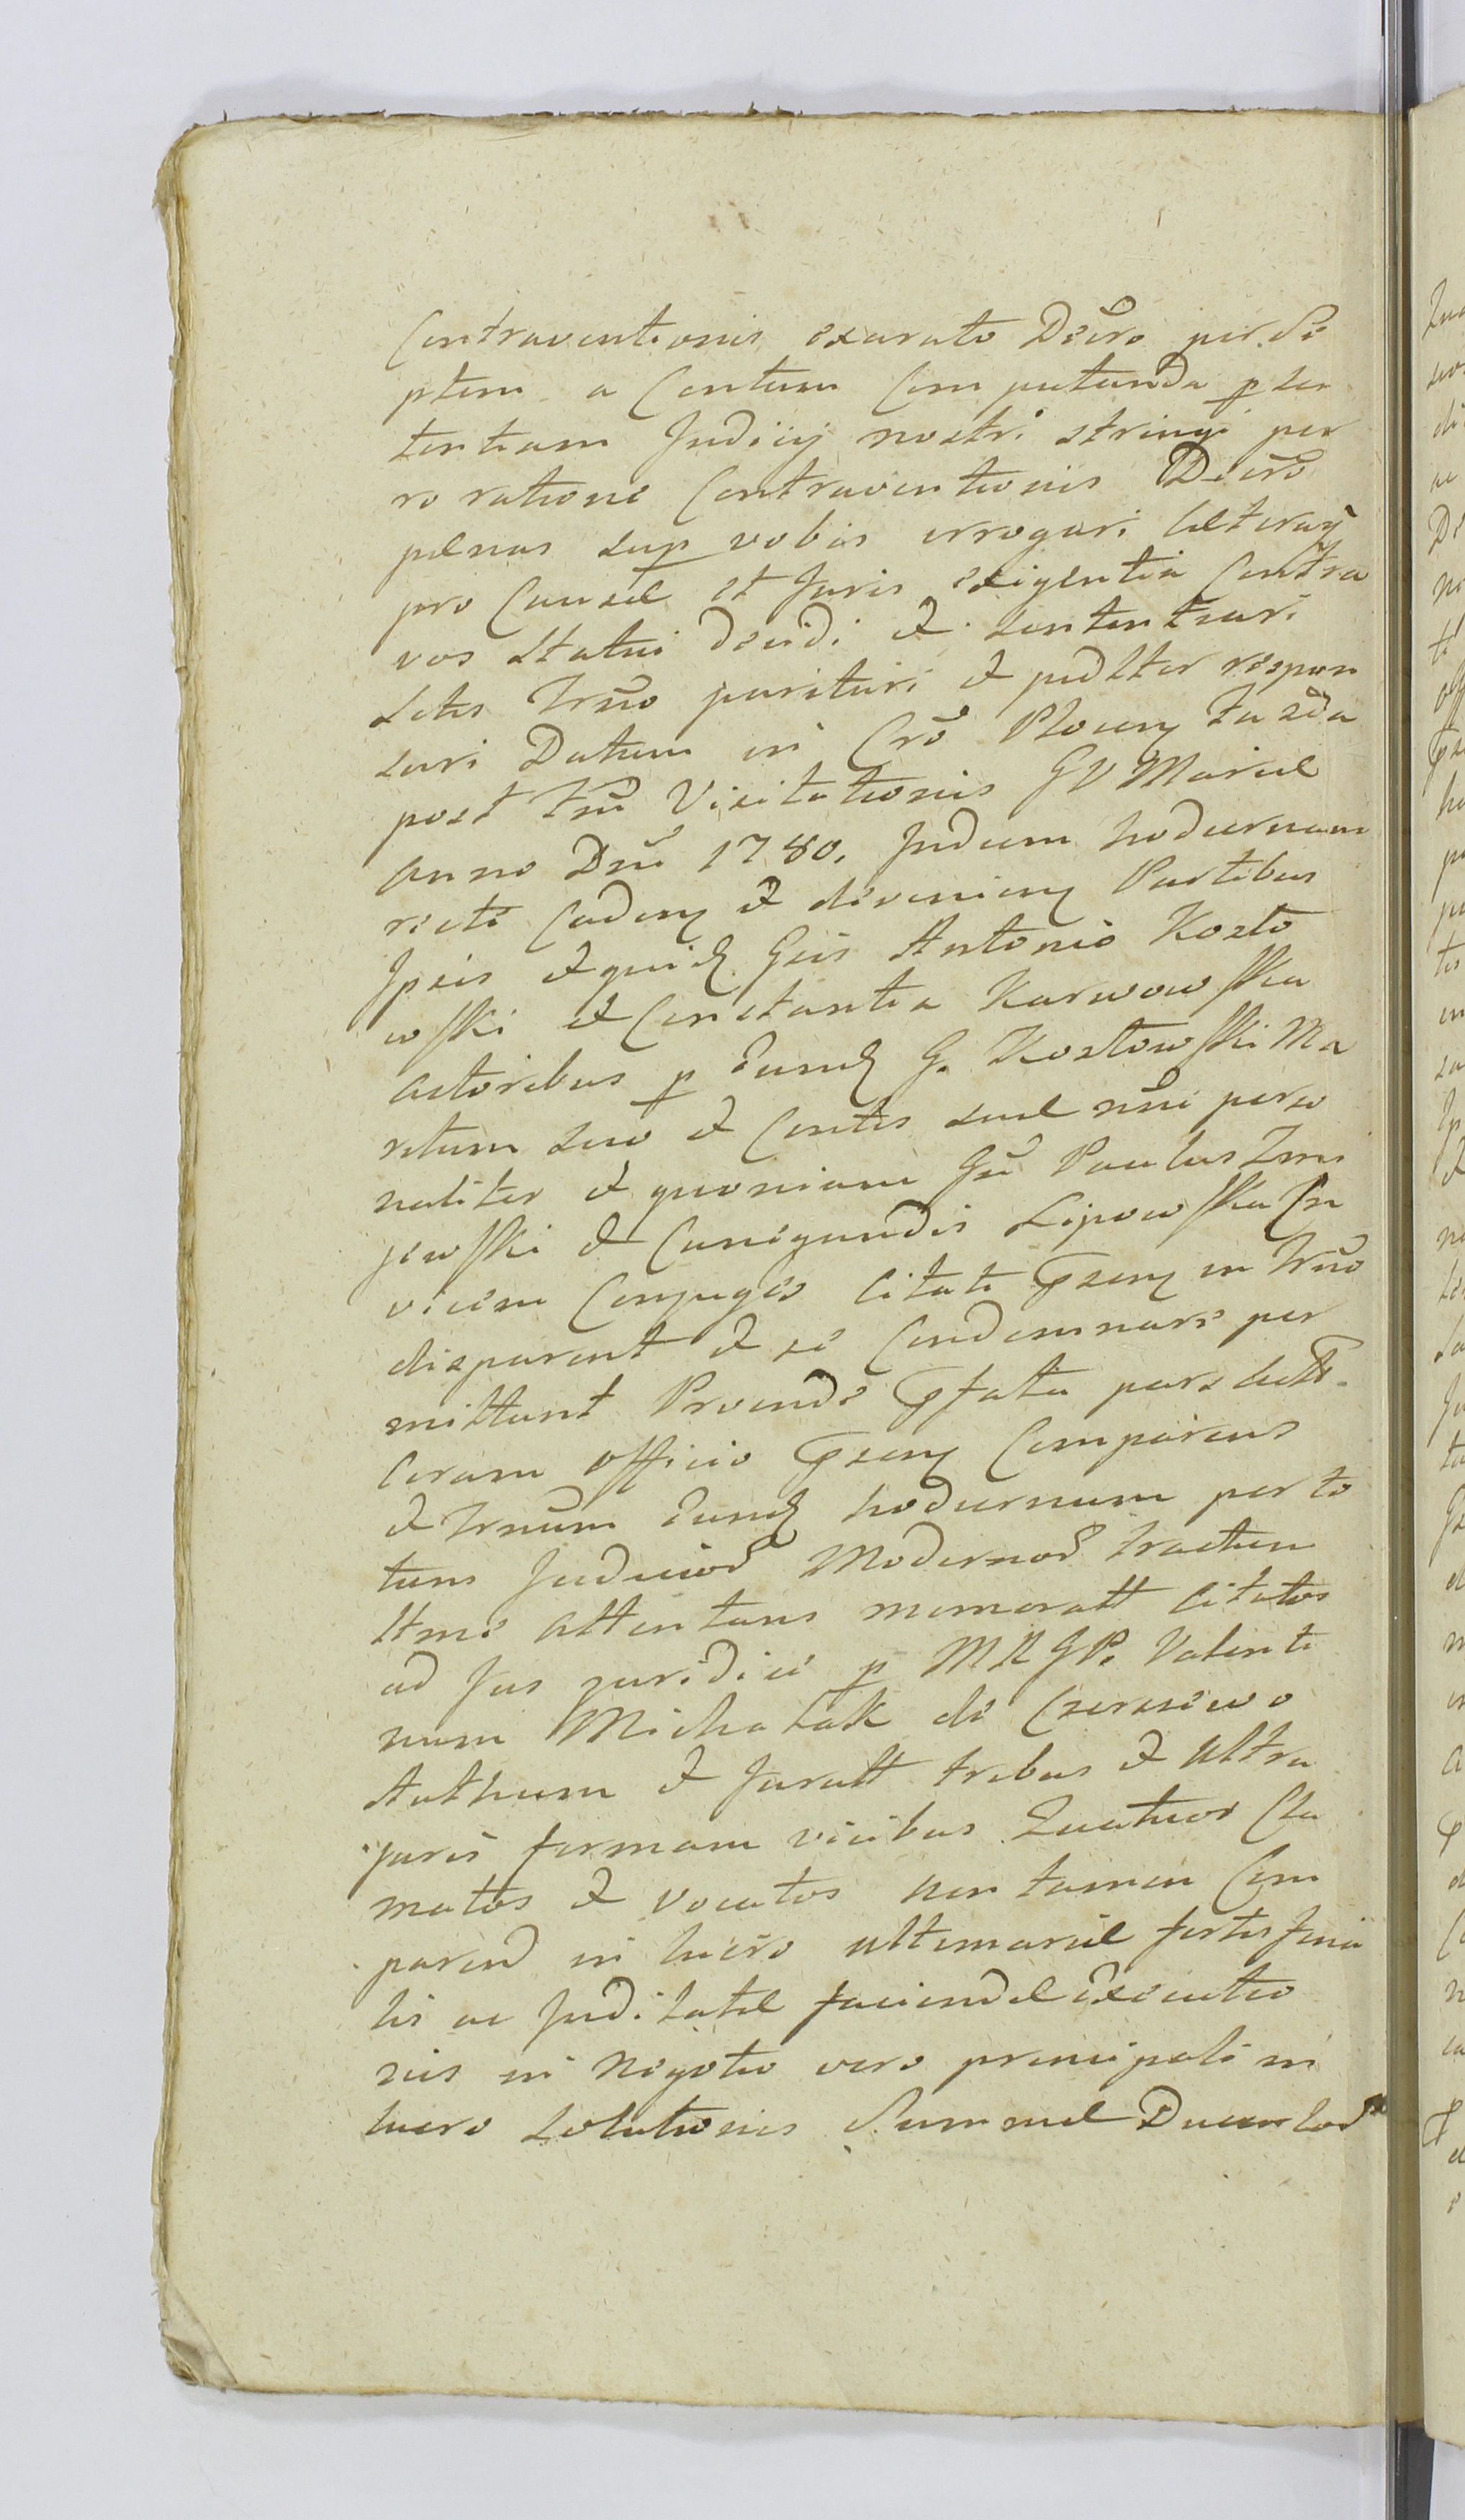 Contraventionis exarato Decro per Se
ptem a Centum Computanda p̱ Sen
tentiam Judicij nostri stringi per
ro ratione Contraventionis Decro
penas sup vobis irrogari Caeteraq̃
pro Causae et Juris exigentia Contra
vos Statui decidi et Sententiari
Sitis Trño parituri et judlter respon
suri Datum in Cro Plocen fua 2da
post tum Visitationis GV Mariae
Anno Dñi 1780. Judum hodiernum
recte Caden et devenien Partibus
Ipsis et quid Gsis Antonio Kozło
wski et Constantia Karwowska
Actoribus p̱ Eund G. Kozłowski Ma
ritum suo et Contis suae nñi perso
naliter et quoniam Gsi Paulus Zmi
jewski et Cunegundis Lipowska In
vicem Conjuges Citati psen in Trño
disparent et se Condemnare per
mittunt Proinde pfata pars Actt.
Coram Officio psen Comparens
et Trñum Eund hodiernum per to
tum Judicior Modernor tractum
ltme Attentans memoratt Citatos
ad Jus juridice p̱ MRGP. Valenti
num Michałak de Czerniewo
Authum et Juratt tribus et Ultra
juris formam vicibus Quatuor Cla
matos et vocatos non tamen Com
parend in lucro ultimariae fortis fina
lis ac Juditatae faciendae Executio
nis in Negotio vero principali in
lucro Solutionis Summae Ducentor